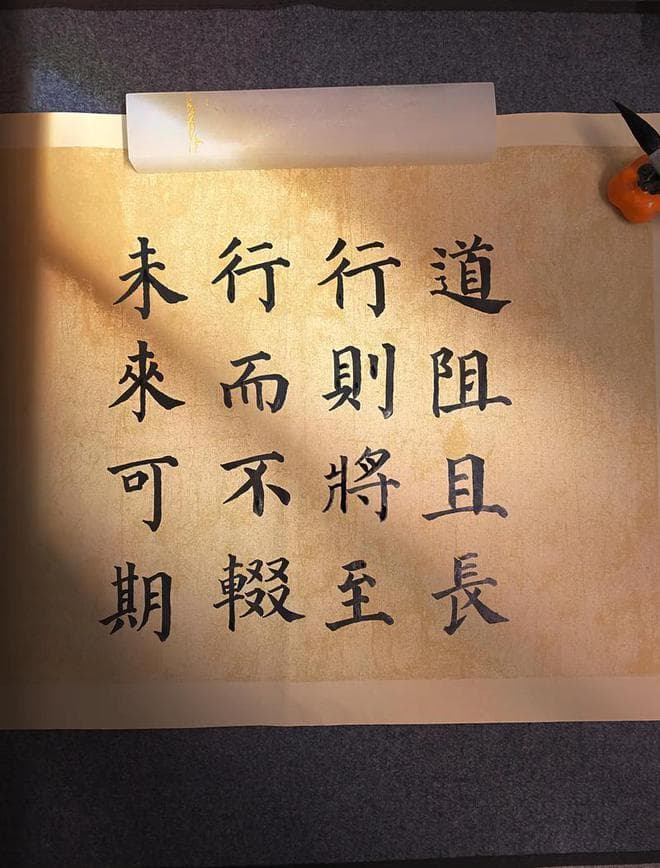 道阻且長
行則將至
行而不輟
未來可期